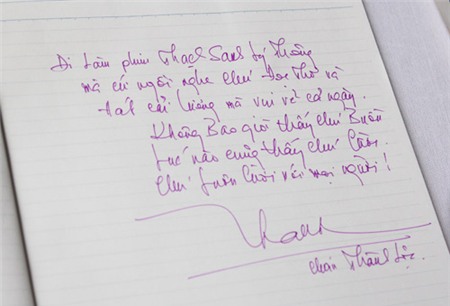 Đi làm phim Thạch Sanh Lý Thông
mà cứ ngồi nghe chú đọc thơ và
hát cải lương mà vui vẻ cả ngày.
Không Bao giờ thấy chú Buồn
Lúc nào cũng thấy chú Cười.
Chú luôn Cười với mọi người!
cháu Thành Lộc.